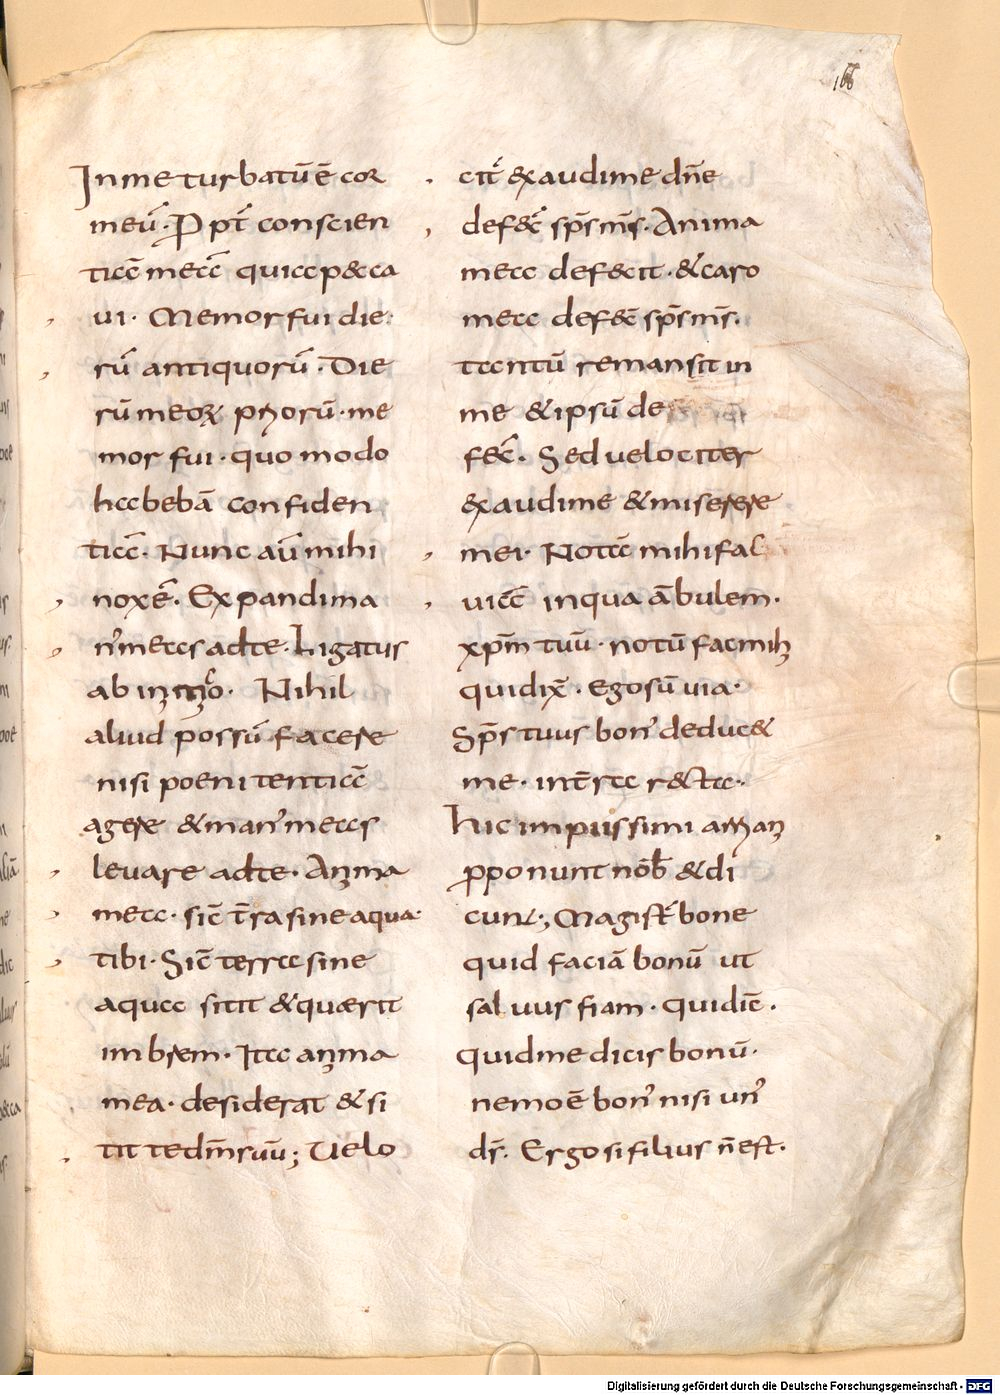 166
In me turbatū ē cor
meū. Ppt̄ conscien
tiā meā quia pecca
ui. Memor fui die
rū antiquorū. Die
rū meoꝝ priorū. me
mor fui. quo modo
habebā confiden
tiā. Nunc aū mihi
nox ē. Expandi ma
n' meas ad te. Ligatus
ab
Nihil
aliud possū facere
nisi poenitentiā
agere & man' meas
levare ad te. Anima
mea. sic̄ t̄ra sine aqua
tibi. Sic̄ terra sine
aqua sitit & quaerit
imbrem. Ita anima
mea. desiderat & si
tit te dm̄ suū; Uelo
cit' exaudi me dn̄e
defec̄ sps̄ ms̄. Anima
mea defecit. & caro
mea defec̄ sps̄ ms̄.
tantū remansit in
me & ipsū de
fec̄. Sed velociter
exaudi me & miserere
mei. Notā mihi fac
uiā in qua ābulem.
xpm̄ tuū. notū fac mih
qui dix̄. Ego sū uia.
Sps̄ tuus bon' deducet
me. in t̄ra recta.
Hic impiissimi arrian
ꝓponunt nob̄ & di
cunt; Magist̄ bone
quid faciā bonū ut
saluus fiam. Qui dic̄.
quid me dicis bonū.
nemo ē bon' nisi un'
ds̄. Ergo si filius n̄ est.
Digitalisierung gefördert durch die Deutsche Forschungsgemeinschaft - DFG